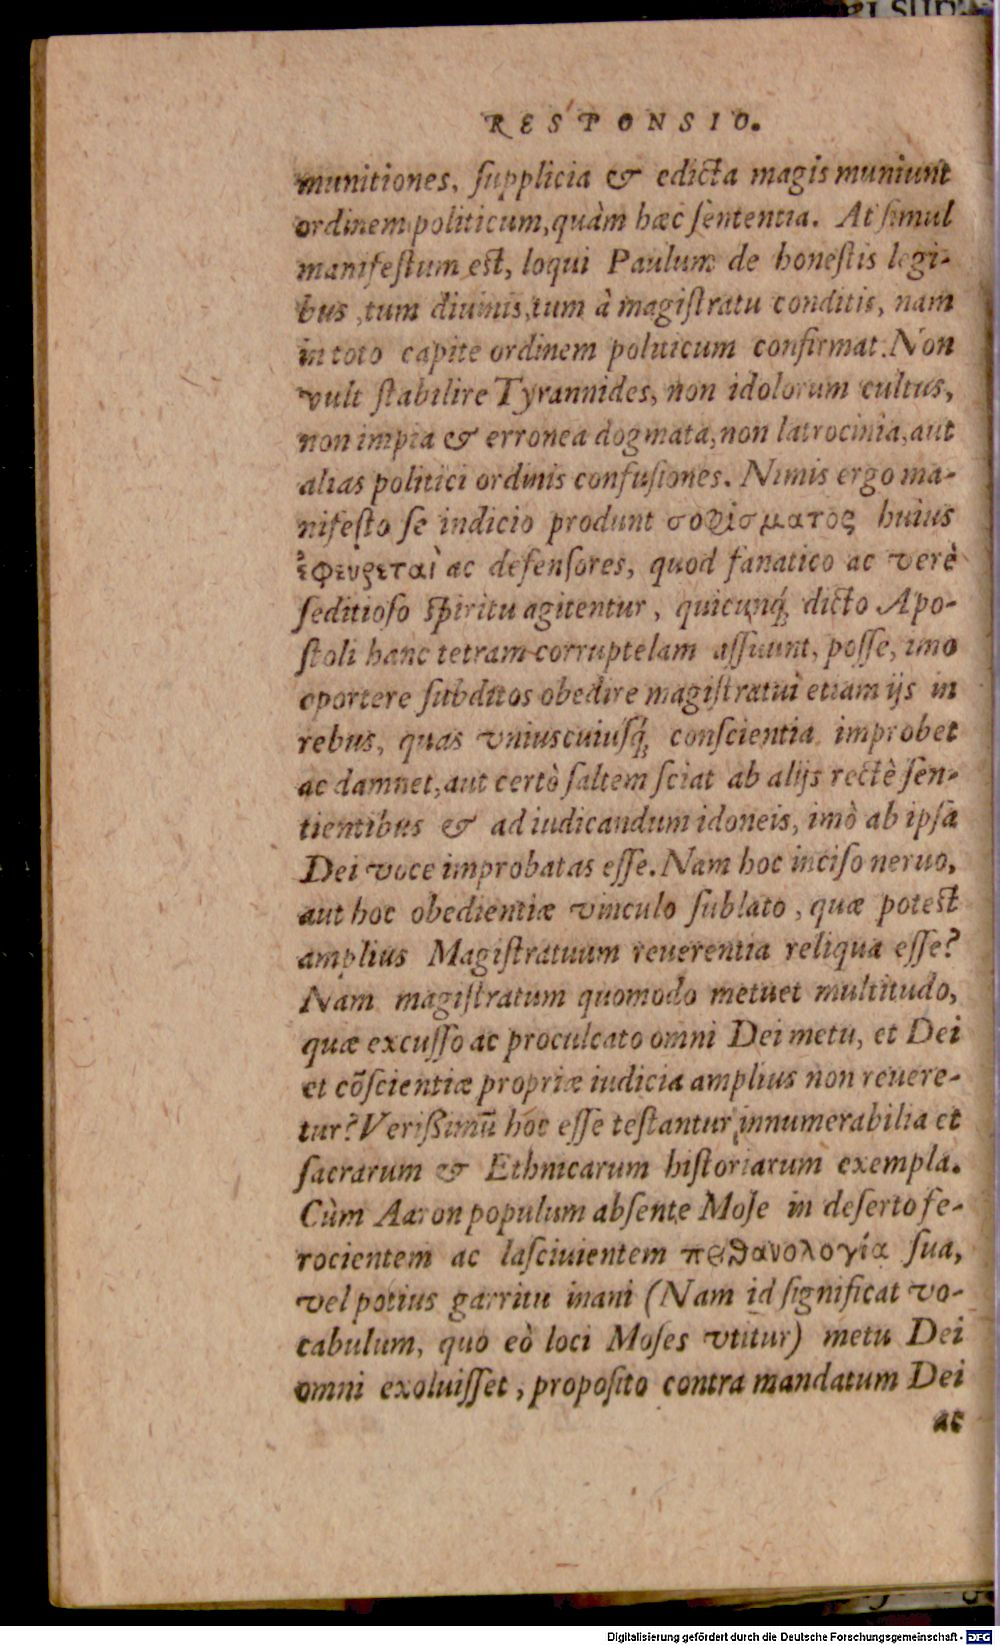 RESPONSIO.
munitiones, ſupplicia & edicta magis muniunt
ordinem politicum, quàm hæc ſententia. At ſimul
manifeſtum eſt, loqui Paulum de honeſtis legi-
bus, tum diuinis, tum à magiſtratu conditis, nam
in toto capite ordinem politicum confirmat. Non
vult ſtabilire Tyrannides, non idolorum cultus,
non impia & erronea dogmata, non latrocinia, aut
alias politici ordinis confuſiones. Nimis ergo ma-
nifeſto ſe indicio produnt σοφίσματος huius
ἐφευρεταὶ ac defenſores, quod fanatico ac verè
ſeditioſo ſpiritu agitentur, quicunq́; dicto Apo-
ſtoli hanc tetram corruptelam aſſuunt, poſſe, imo
oportere ſubditos obedire magiſtratui etiam ijs in
rebus, quas vniuscuiuſq́; conſcientia improbet
ac damnet, aut certò ſaltem ſciat ab alijs rectè ſen-
tientibus & ad iudicandum idoneis, imò ab ipſa
Dei voce improbatas eſſe. Nam hoc inciſo neruo,
aut hoc obedientiæ vinculo ſublato, quæ poteſt
amplius Magiſtratuum reuerentia reliqua eſſe?
Nam magiſtratum quomodo metuet multitudo,
quæ excuſſo ac proculcato omni Dei metu, et Dei
et cõſcientiæ propriæ iudicia amplius non reuere-
tur? Verißimū hoc eſſe teſtantur innumerabilia et
ſacrarum & Ethnicarum hiſtoriarum exempla.
Cùm Aaron populum abſente Moſe in deſerto fe-
rocientem ac laſciuientem πιθανολογία ſua,
vel potius garritu inani (Nam id ſignificat vo-
cabulum, quo eò loci Moſes vtitur) metu Dei
omni exoluiſſet, propoſito contra mandatum Dei
ac
Digitalisierung gefördert durch die Deutsche Forschungsgemeinschaft - DFG